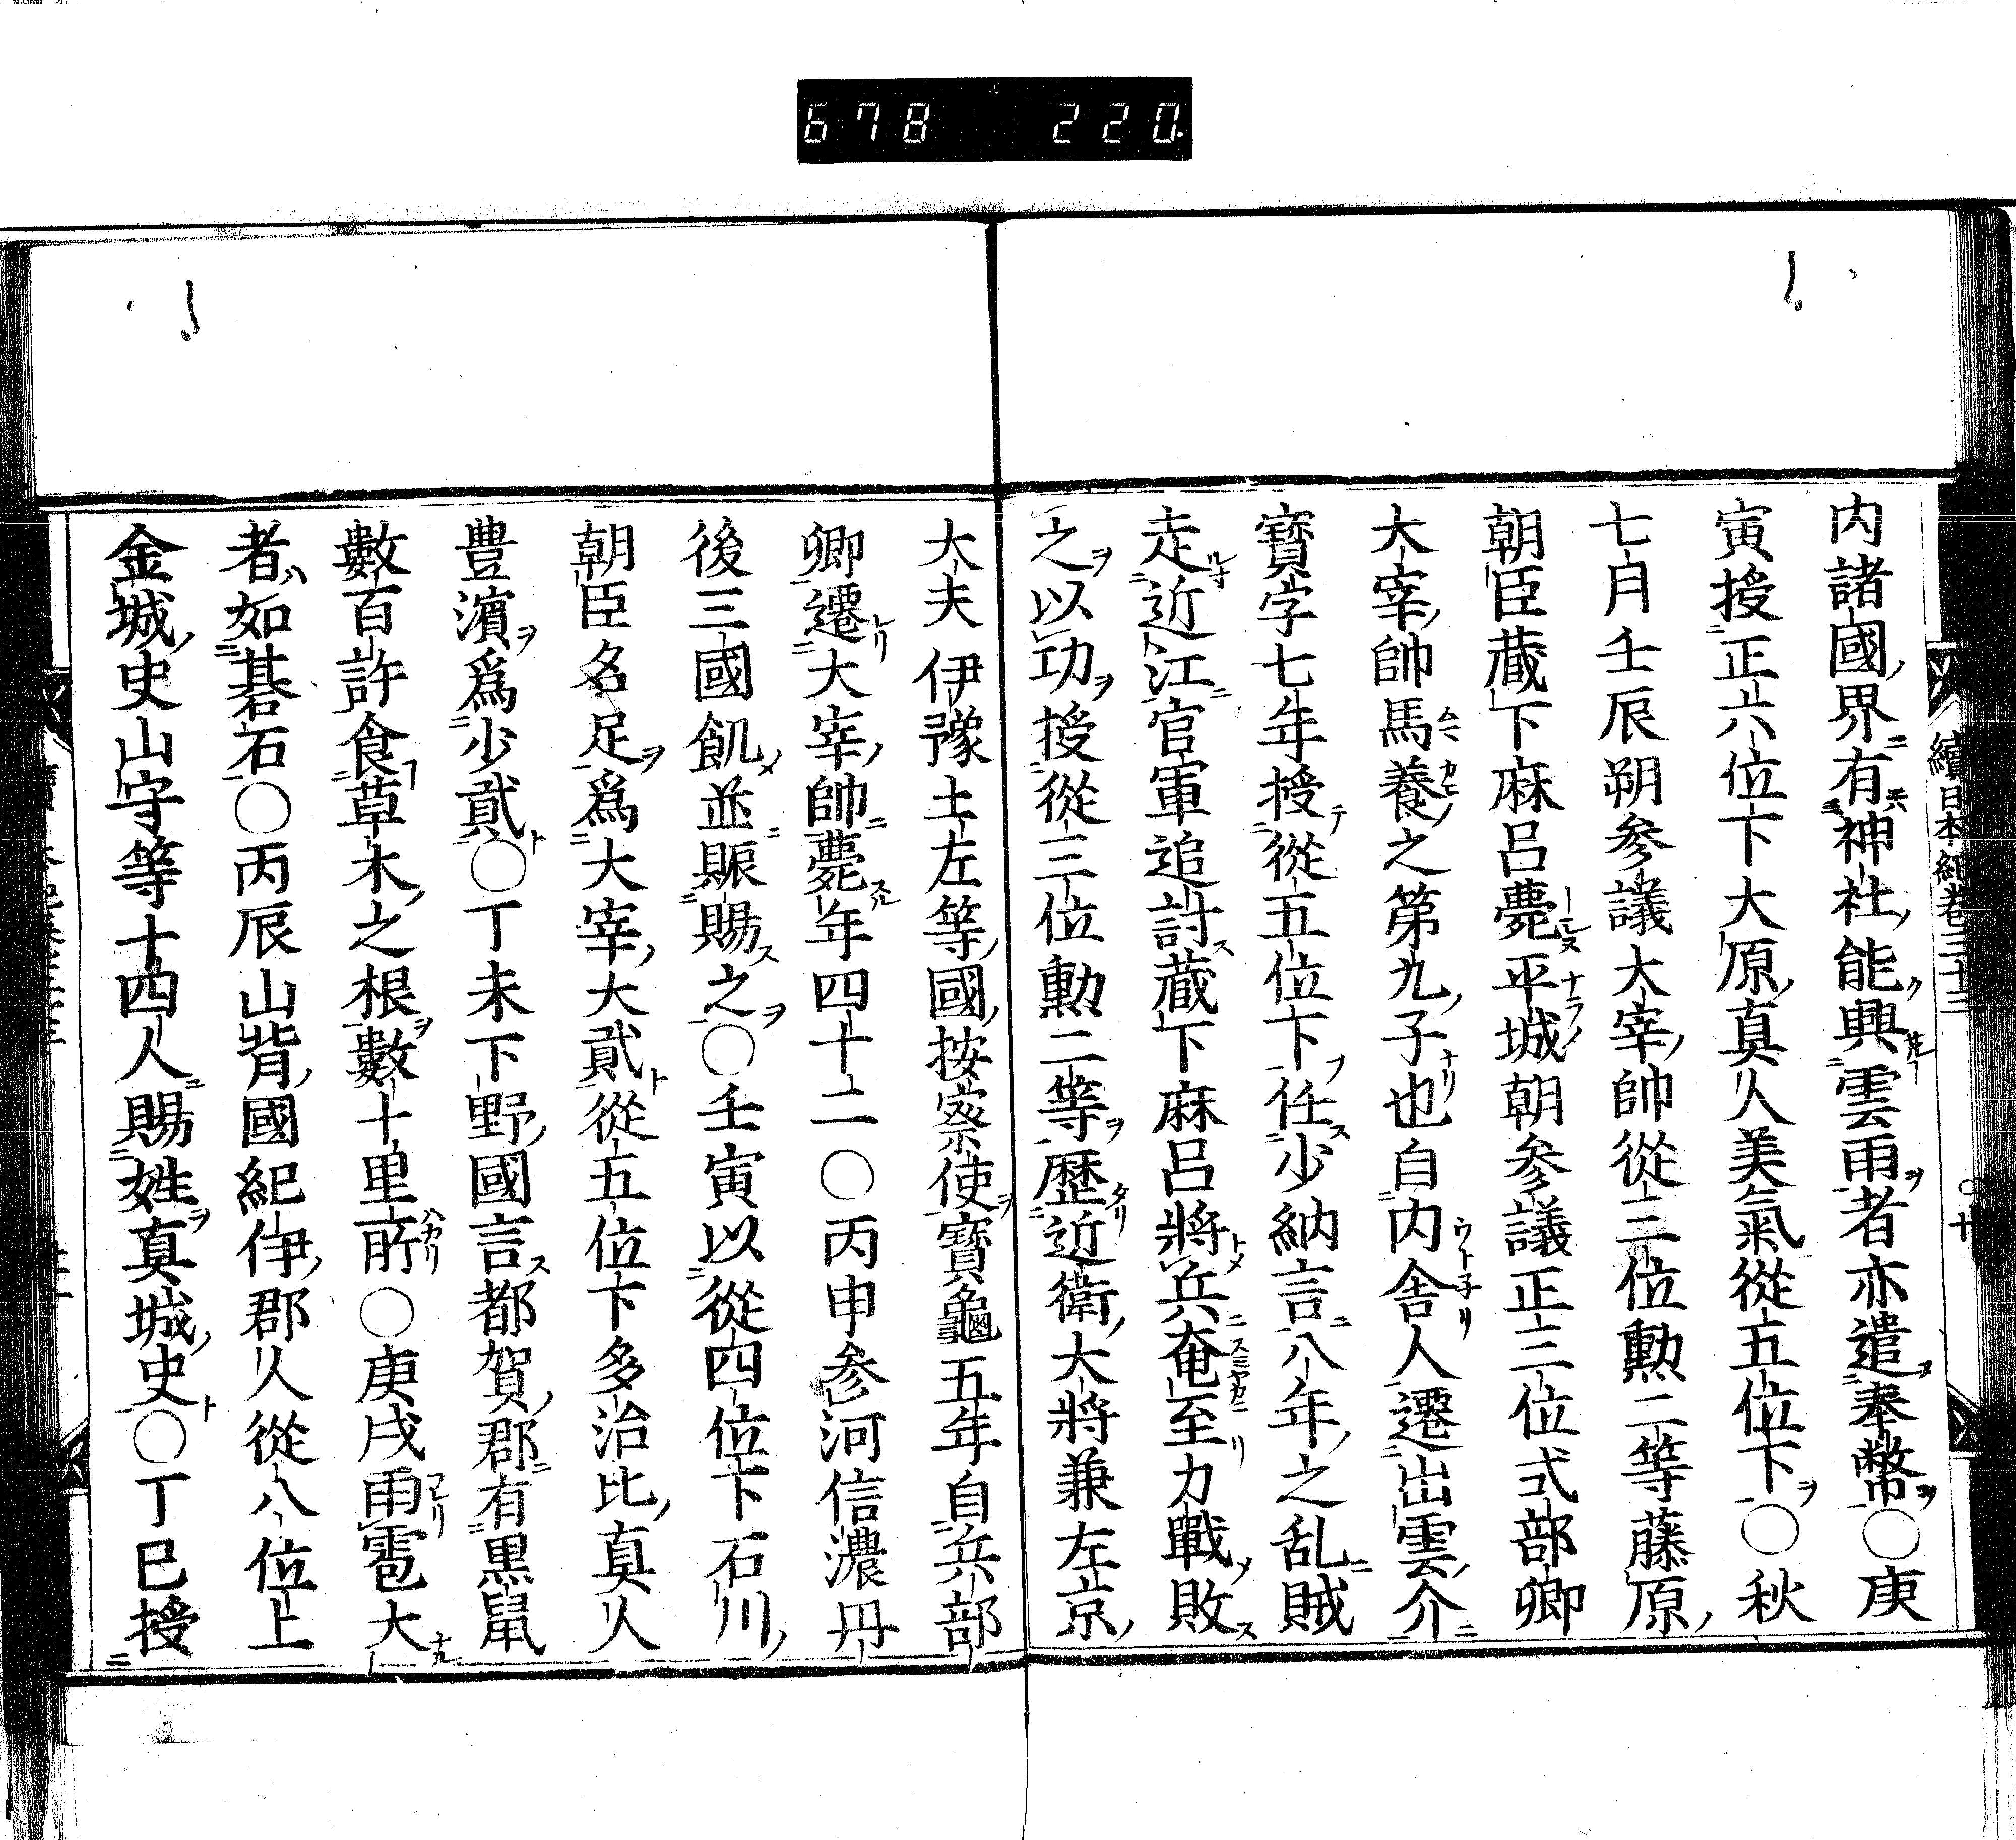 678 220.
續日本紀卷三十三 ○十
内諸國界有神社能興雲雨者亦遣奉幣○庚
寅授正六位下大原真人美氣從五位下○秋
七月壬辰朔參議大宰帥從三位勳二等藤原
朝臣藏下麻呂薨平城朝參議正三位式部卿
大宰帥馬養之第九子也自内舍人遷出雲介
寶字七年授從五位下任少納言八年之乱賊
走近江官軍追討藏下麻呂將兵奄至力戰敗
之以功授從三位勳二等歷近衛大將兼左京
大夫伊豫土左等國按察使寶龜五年自兵部
卿遷大宰帥薨年四十二○丙申參河信濃丹
後三國飢並賑賜之○壬寅以從四位下石川
朝臣名足爲大宰大貳從五位下多治比真人
豊濱爲少貳○丁未下野國言都賀郡有黒鼠
數百許食草木之根數十里所○庚戌雨雹大
者如碁石○丙辰山背國紀伊郡人從八位上
金城史山守等十四人賜姓真城史○丁巳授